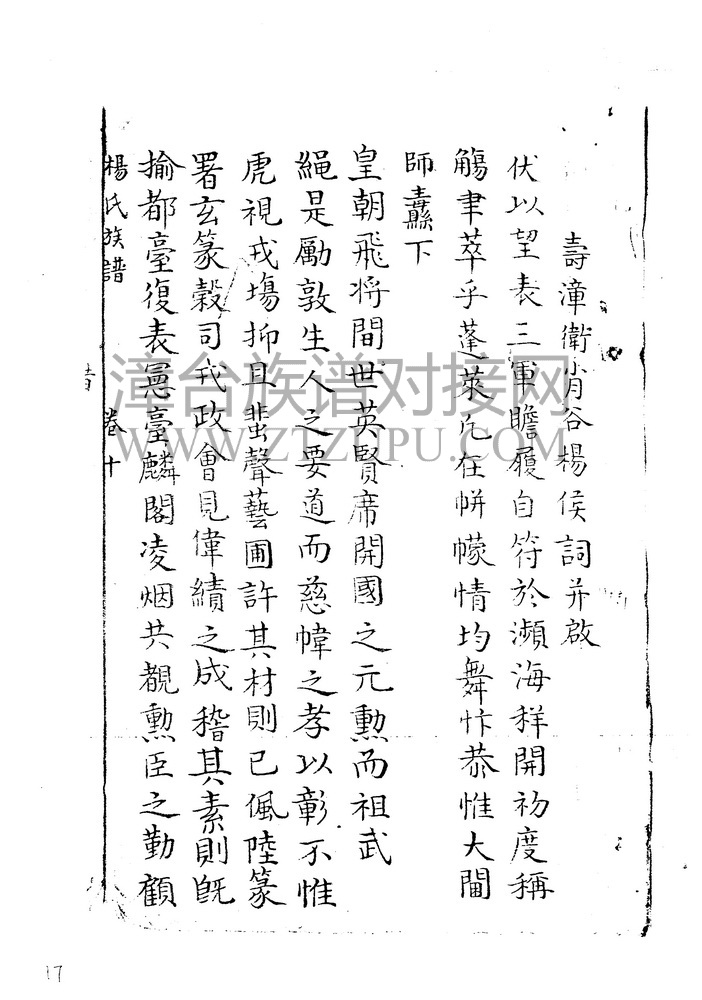 壽漳衛小月谷楊侯詞并啟
伏以望表三軍瞻履自符於瀕海祥開初度稱
觴聿萃乎蓬萊凡在帡幪情均舞忭恭惟大閫
師纛下
皇朝飛將間世英賢席開國之元勳而祖武
繩是勵敦生人之要道而慈幃之孝以彰不惟
虎視戎場抑且蜚聲藝圃許其材則已佩陸篆
署玄篆穀司戎政會見偉績之成稽其素則旣
揄都臺復表憲臺麟閣凌烟共覩勲臣之勤顧
楊氏族譜 卷十
漳台族谱对接网
WWW.ZTZUPU.COM
17